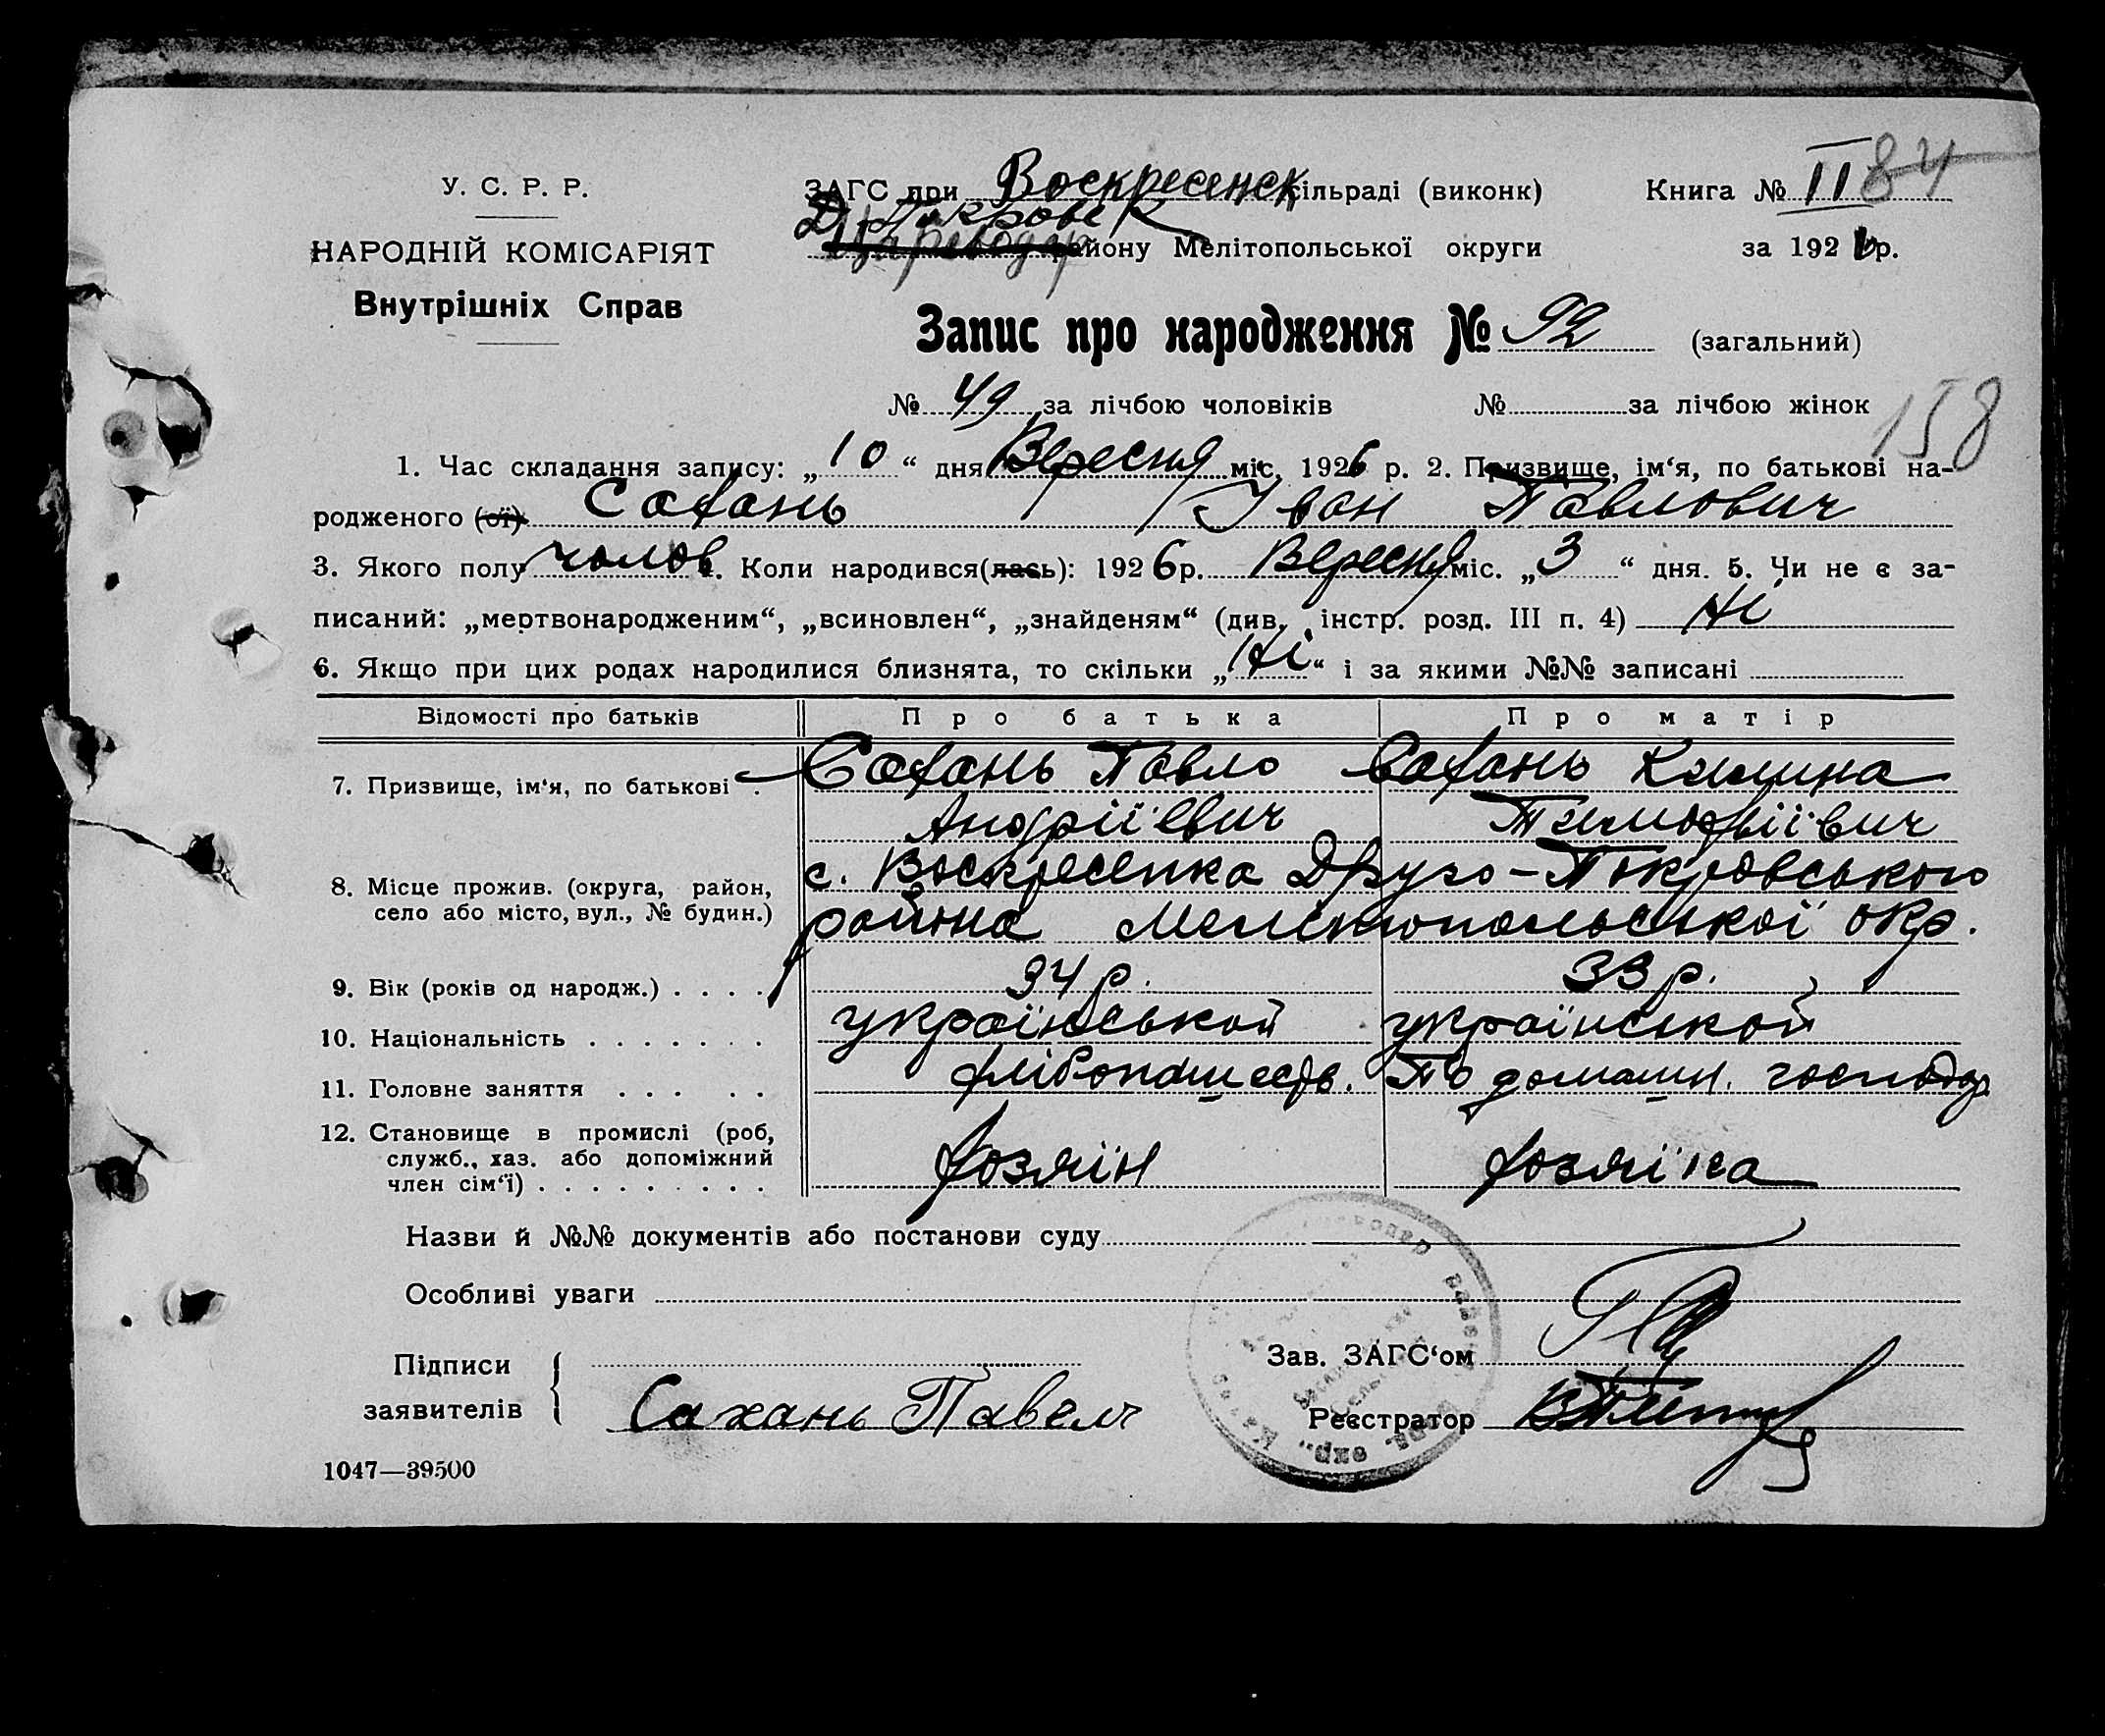 У. С. Р. Р.
НАРОДНІЙ КОМІСАРІЯТ
Внутрішніх Справ
ЗАГС при Воскресенск сільраді (виконк) Книга № II 84
Д Покровск
Цареводар району Мелітопольської округи за 1926 р.
Запис про народження № 92 (загальний)
№ 49 за лічбою чоловіків № за лічбою жінок 158
1. Час складання запису: „10“ дня Вересня міс. 1926 р. 2. Призвище, ім‘я, по батькові на-
родженого (ої) Сахань Іван Павлович
3. Якого полу чолов. 4. Коли народився(лась): 1926 р. Вересня міс. „3“ дня. 5. Чи не є за-
писаний: „мертвонародженим“, „всиновлен“, „знайденям“ (див. інстр. розд. III п. 4) Ні
6. Якщо при цих родах народилися близнята, то скільки „Ні“ і за якими №№ записані
Відомості про батьків Про батька Про матір
7. Призвище, ім‘я, по батькові . Сахань Павло Сахань Килина
Андріївич Тимофіївич
8. Місце прожив. (округа, район, с. Воскресенка Друго-Покровського
село або місто, вул., № будин.) района Мелітопольської окр.
9. Вік (років од народж.) . . . . 34 р. 33 р.
10. Національність . . . . . . . українськой українской
11. Головне заняття . . . . . хлібопашеств. По домашн. господар
12. Становище в промислі (роб,
служб., хаз. або допоміжний хозяїн хозяїка
член сім‘ї) . . . . . . . . .
Назви й №№ документів або постанови суду
Особливі уваги
Підписи Зав. ЗАГС‘ом
заявителів Сахань Павел Реєстратор
1047—39500